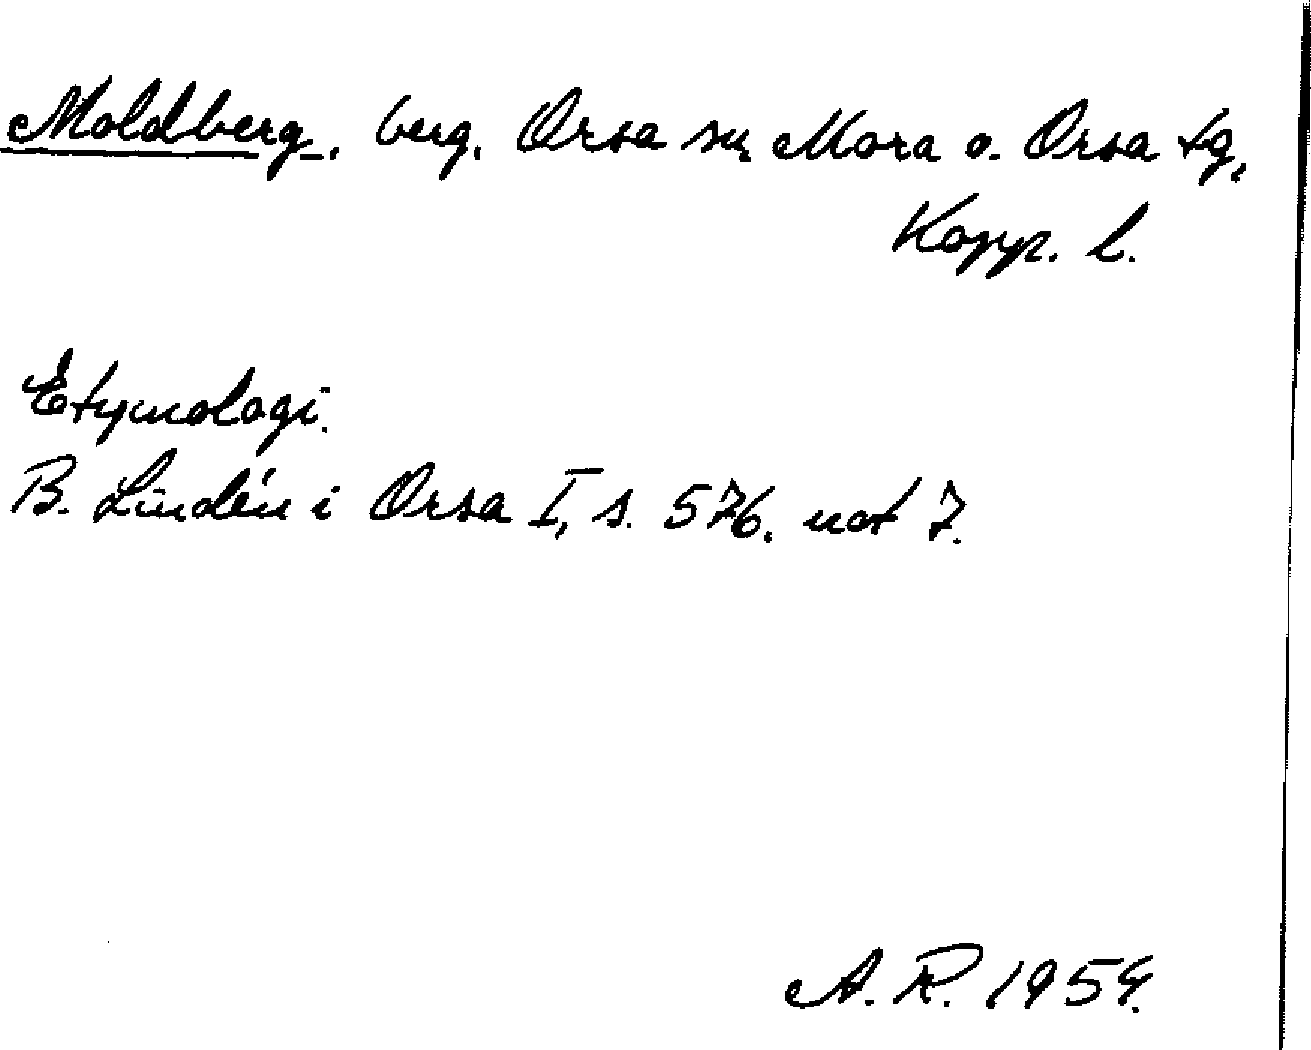 Moldberg, berg, Orsa sn, Mora o. Orsa tg,
Kopp. l.
Etymologi.
B. Lindén i Orsa I, s. 576. not 7.
A. R. 1954.